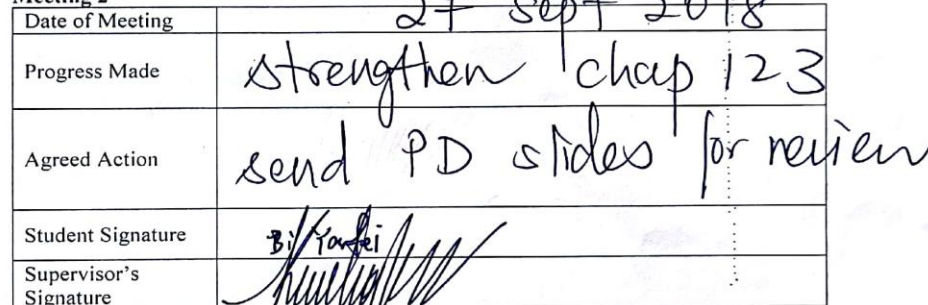 Meeting 2
Date of Meeting 27 Sept 2018
Progress Made strengthen chap 123
Agreed Action send PD slides for review
Student Signature Bi Yanfei
Supervisor's
Signature